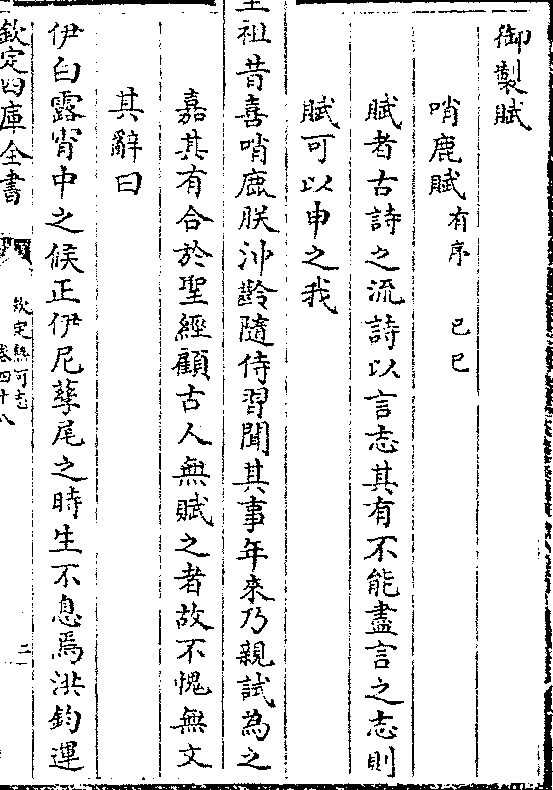 御製賦
哨鹿賦有序 己巳
賦者古詩之流詩以言志其有不能盡言之志則
賦可以申之我
聖祖昔喜哨鹿朕沖齡隨侍習聞其事年來乃親試為之
嘉其有合於聖經顧古人無賦之者故不愧無文
其辭曰
伊白露宵中之候正伊尼孳尾之時生不息焉洪鈞運
欽定四庫全書
欽定熱河志
卷四十八
三